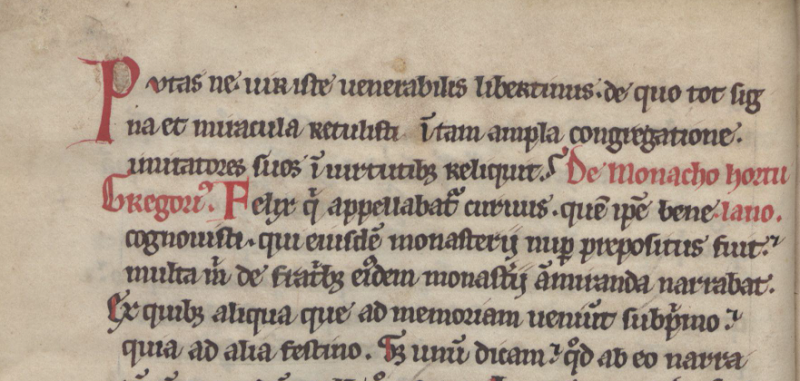 Putas ne uir iste uenerabilis libertinus. de quo tot sig
na et miracula retulisti ī tam ampla congregatione.
imitatores suos ī uirtutibꝫ reliquit. De monacho hortu
Gregoriꝰ. Felix q̄ appellabat᷑ curuus. quē ip̄e bene lano.
cognouisti. qui eiusdē monasterij nup̄ prepositus fuit.
multa m̄ de fratꝛibꝫ eiꝰdem monast̄ij āmiranda narrabat.
Ex quibꝫ aliqua que ad memoriam ueniūt subp̄mo.
quia ad alia festino. Sꝫ unū dicam. qd̄ ab eo narra